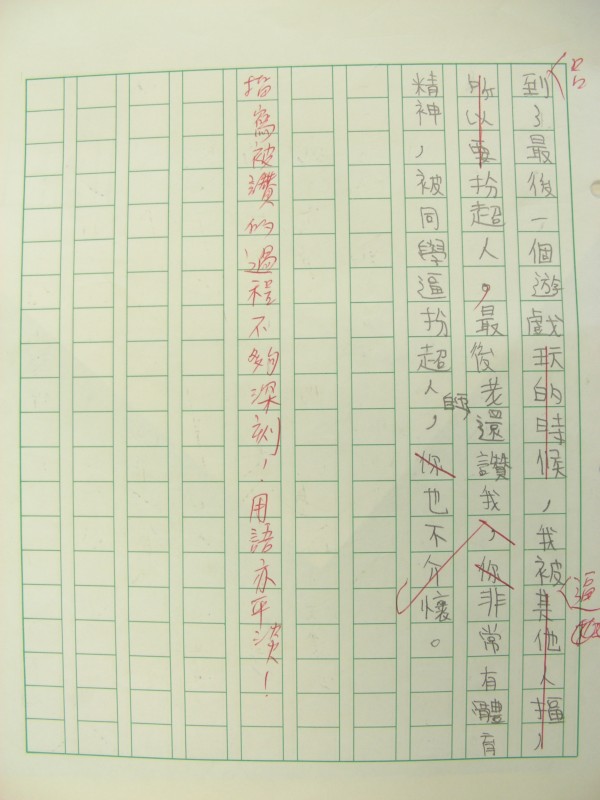 到了最後一個遊戲玩的時候，我被其他人搵，
逼
所以要扮超人。最後老師還讚我，你非常有體育
精神，被同學逼扮超人，你也不介懷。
描寫被讚的過程不夠深刻！用語亦平淡！